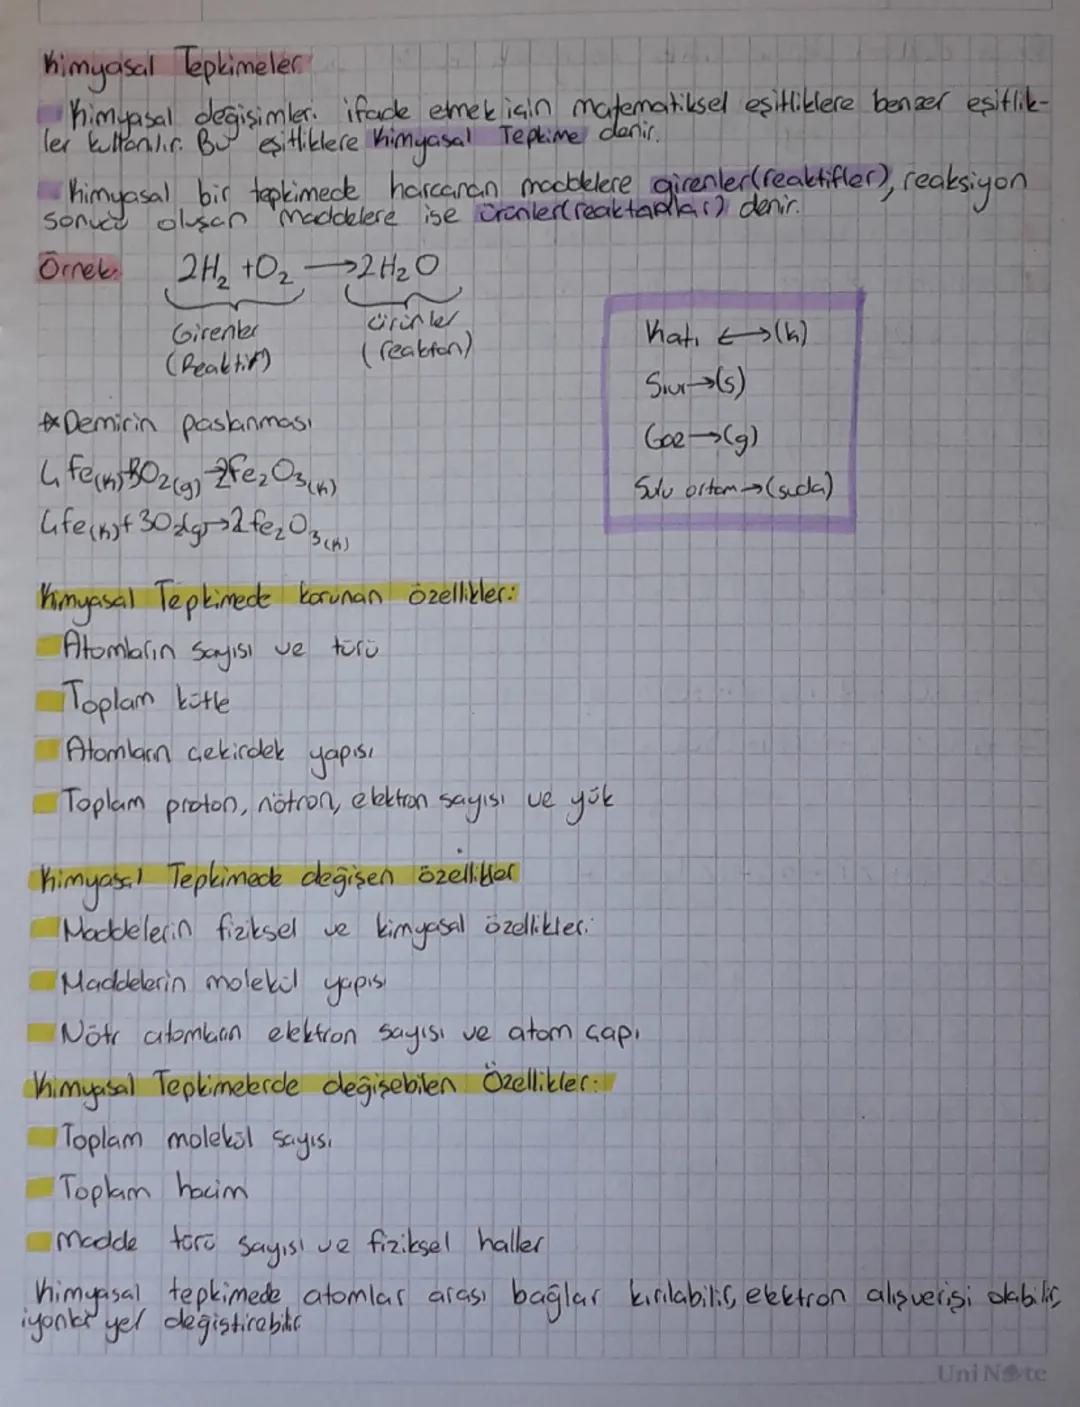 Kimyasal Tepkimeler
Kimyasal değişimleri ifade etmek için matematiksel eşitliklere benzer eşitlik-
ler kullanılır. Bu eşitliklere Kimyasal Tepkime denir.
Kimyasal bir tepkimede harcanan maddelere girenler(reaktifler), reaksiyon
sonucu oluşan maddelere ise ürünler(reaktanlar) denir.
Örnek:
2H₂ +O₂ →2H₂O
Girenler
(Reaktif)
ürünler
(reaktan)
Katı ↔(k)
Sıvı→(s)
Gaz→(g)
Sulu ortam→(suda)
*Demirin paslanması
4fe(k)+3O₂(g)→2fe₂O₃(k)
4fe(k)+3O₂(g)→2fe₂O₃(k)
Kimyasal Tepkimede korunan özellikler:
Atomların sayısı ve türü
Toplam kütle
Atomların çekirdek yapısı
Toplam proton, nötron, elektron sayısı ve yük
Kimyasal Tepkimede değişen özellikler
Maddelerin fiziksel ve kimyasal özellikleri
Maddelerin molekül yapısı
Nötr atomların elektron sayısı ve atom çapı
Kimyasal Tepkimelerde değişebilen Özellikler:
Toplam molekül sayısı
Toplam hacim
Madde türü sayısı ve fiziksel haller
Kimyasal tepkimede atomlar arası bağlar kırılabilir, elektron alışverişi olabilir,
iyonlar yer değiştirebilir
UniNote